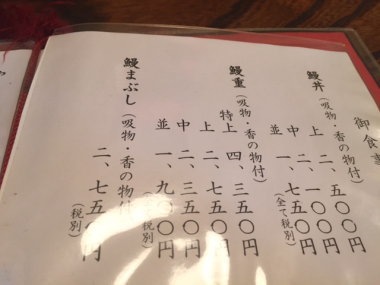 御食事
鰻丼(吸物・香の物付)
上 二、五〇〇円
中 二、一〇〇円
並 一、七五〇円
(全て税別)
鰻重(吸物・香の物付)
特上 四、三五〇円
上 二、七五〇円
中 二、三五〇円
並 一、九〇〇円
(全て税別)
鰻まぶし(吸物・香の物付)
二、七五〇円
(税別)